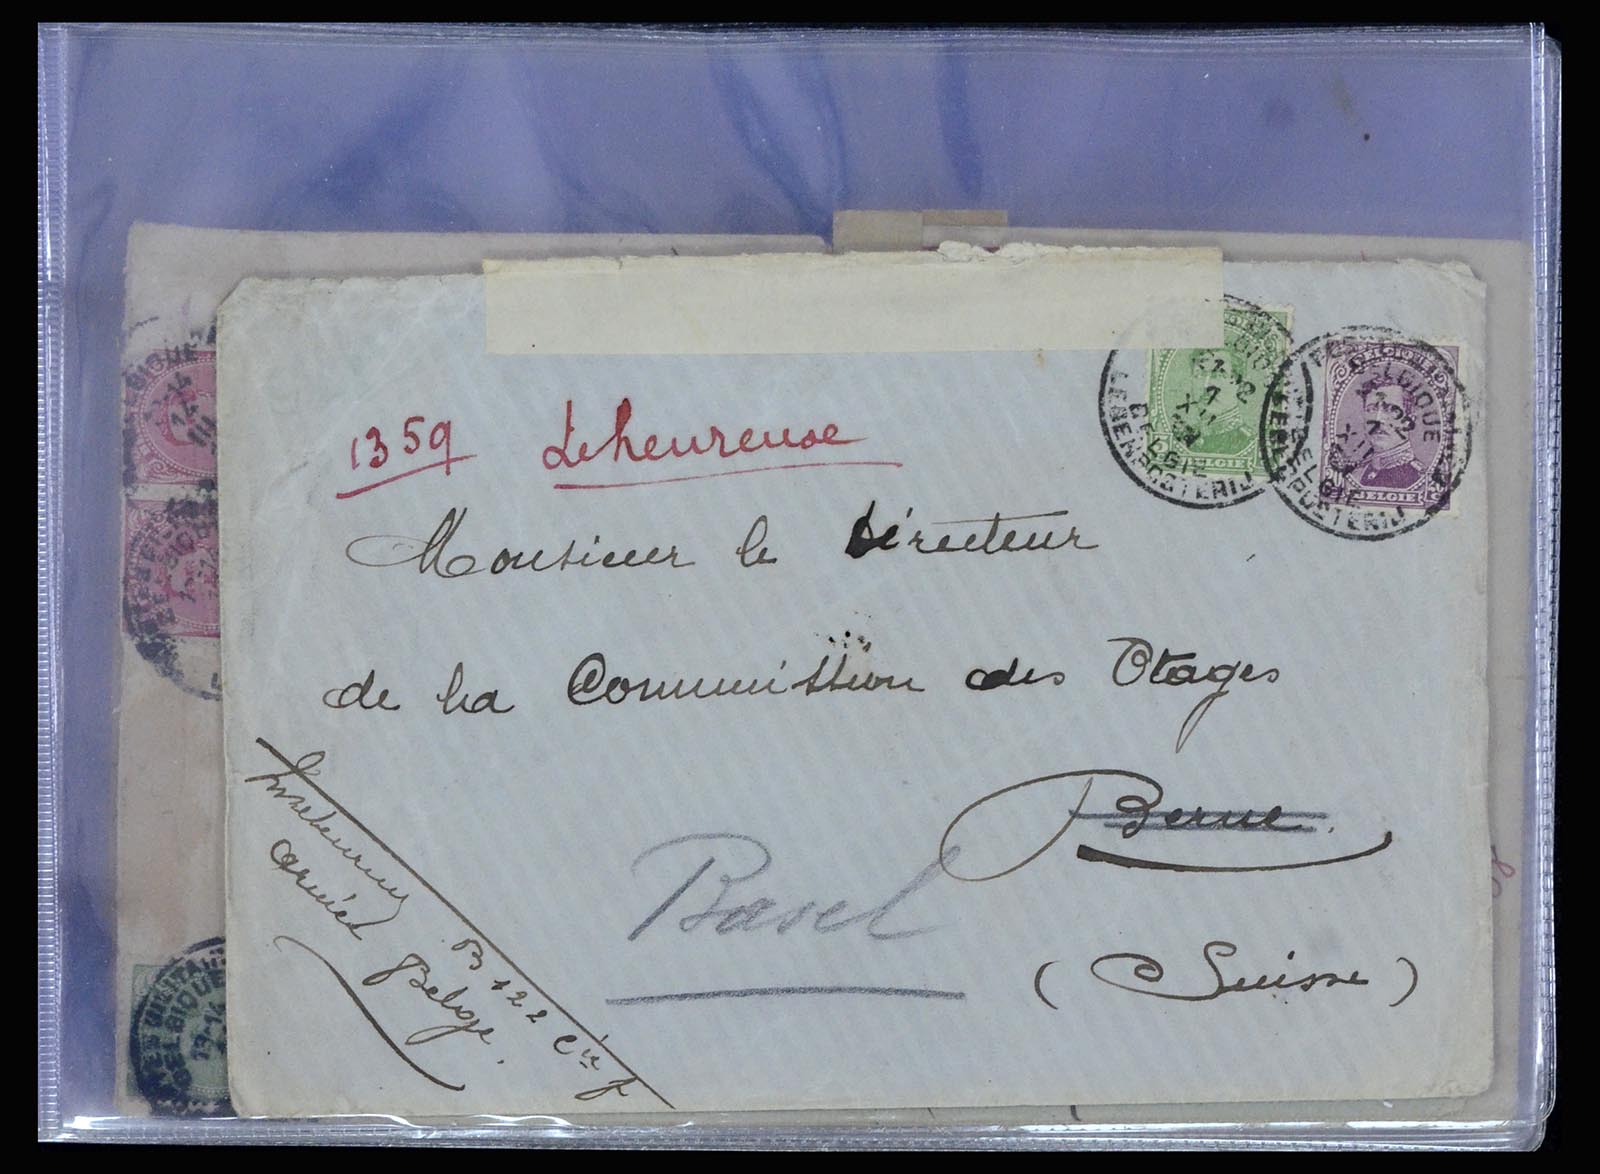 1359 Leheureuse
Monsieur le Directeur
de la Commission des Otages
Berne
Basel
(Suisse)
B 122 Cie f
armée Belge.
BELGIQUE
BELGIE
LEGERPOSTERIJ
BELGIE
BELGIQUE
BELGIE
LEGERPOSTERIJ
BELGIE
BELGIQUE
BELGIQUE